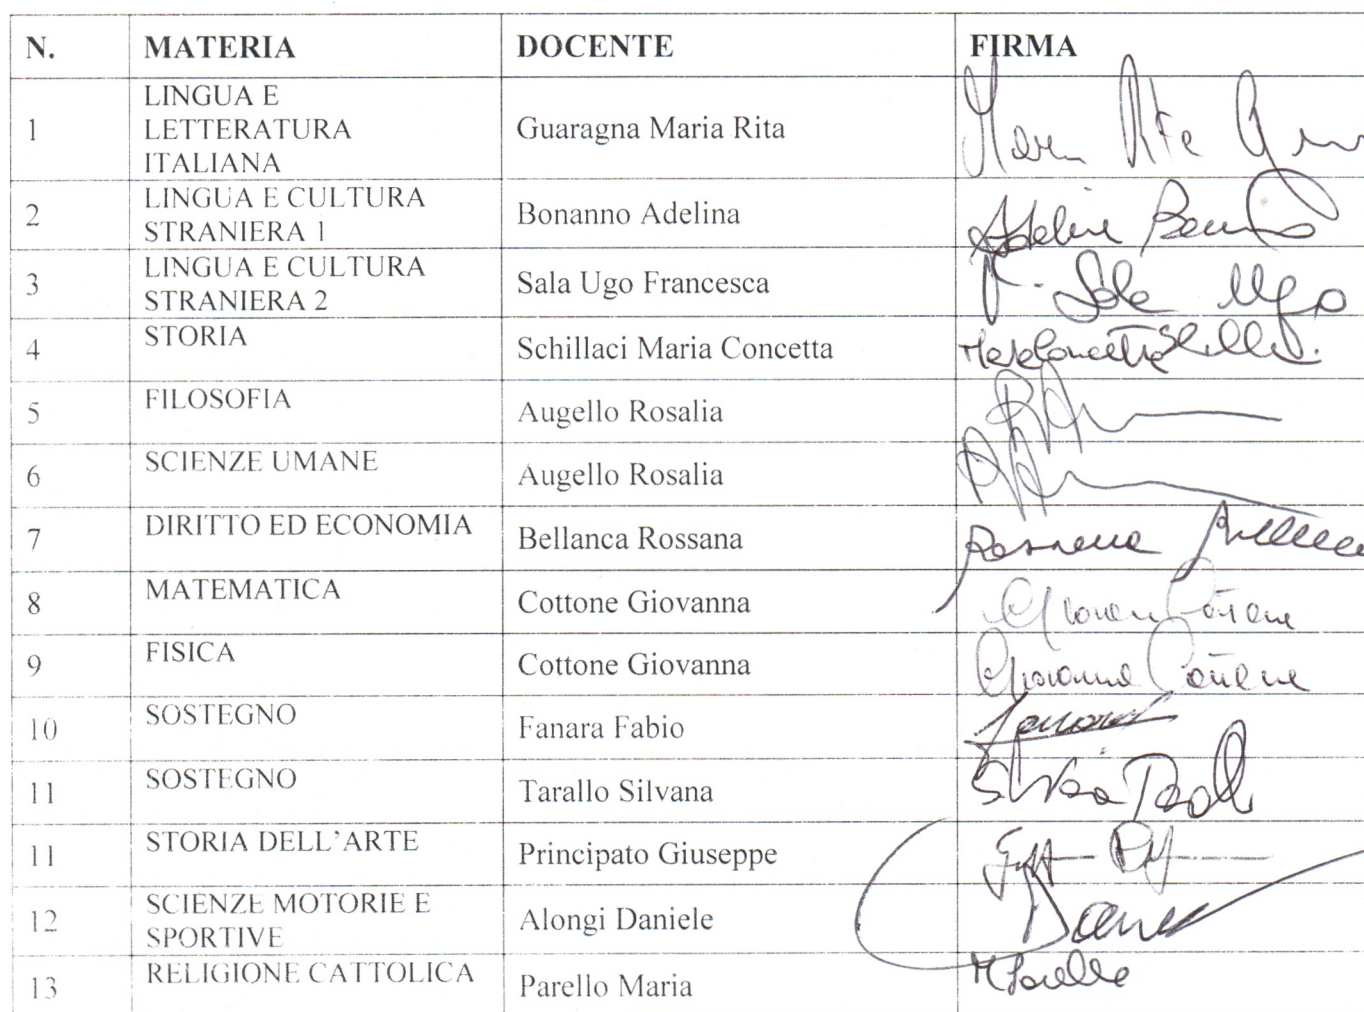 N. MATERIA DOCENTE FIRMA
1 LINGUA E LETTERATURA ITALIANA Guaragna Maria Rita Maria Rita
2 LINGUA E CULTURA STRANIERA 1 Bonanno Adelina Adelina
3 LINGUA E CULTURA STRANIERA 2 Sala Ugo Francesca F. Sala Ugo
4 STORIA Schillaci Maria Concetta
5 FILOSOFIA Augello Rosalia
6 SCIENZE UMANE Augello Rosalia
7 DIRITTO ED ECONOMIA Bellanca Rossana Rossana
8 MATEMATICA Cottone Giovanna Giovanna Cottone
9 FISICA Cottone Giovanna Giovanna Cottone
10 SOSTEGNO Fanara Fabio
11 SOSTEGNO Tarallo Silvana
11 STORIA DELL'ARTE Principato Giuseppe
12 SCIENZE MOTORIE E SPORTIVE Alongi Daniele
13 RELIGIONE CATTOLICA Parello Maria M Parello